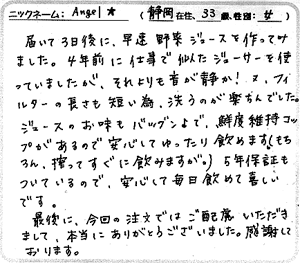 ニックネーム: Angel★ (静岡在住、33歳、性別: 女)
届いて3日後に、早速野菜ジュースを作ってみ
ました。4年前に仕事で似たジューサーを使
っていましたが、それよりも音が静か!又、フィ
ルターの長さも短い為、洗うのが楽ちんでした。
ジュースのお味もバッグンよで、鮮度維持コッ
プがあるので安心してゆったり飲めます(もち
ろん、搾ってすぐに飲みますが。) 5年保証も
ついているので、安心して毎日飲めて喜しい
です。
最後に、今回の注文ではご配慮いただき
まして、本当にありがとうございました。感謝して
おります。